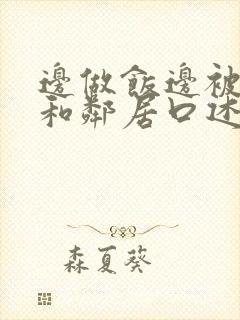 邊做飯邊被
和鄰居口述
森夏葵